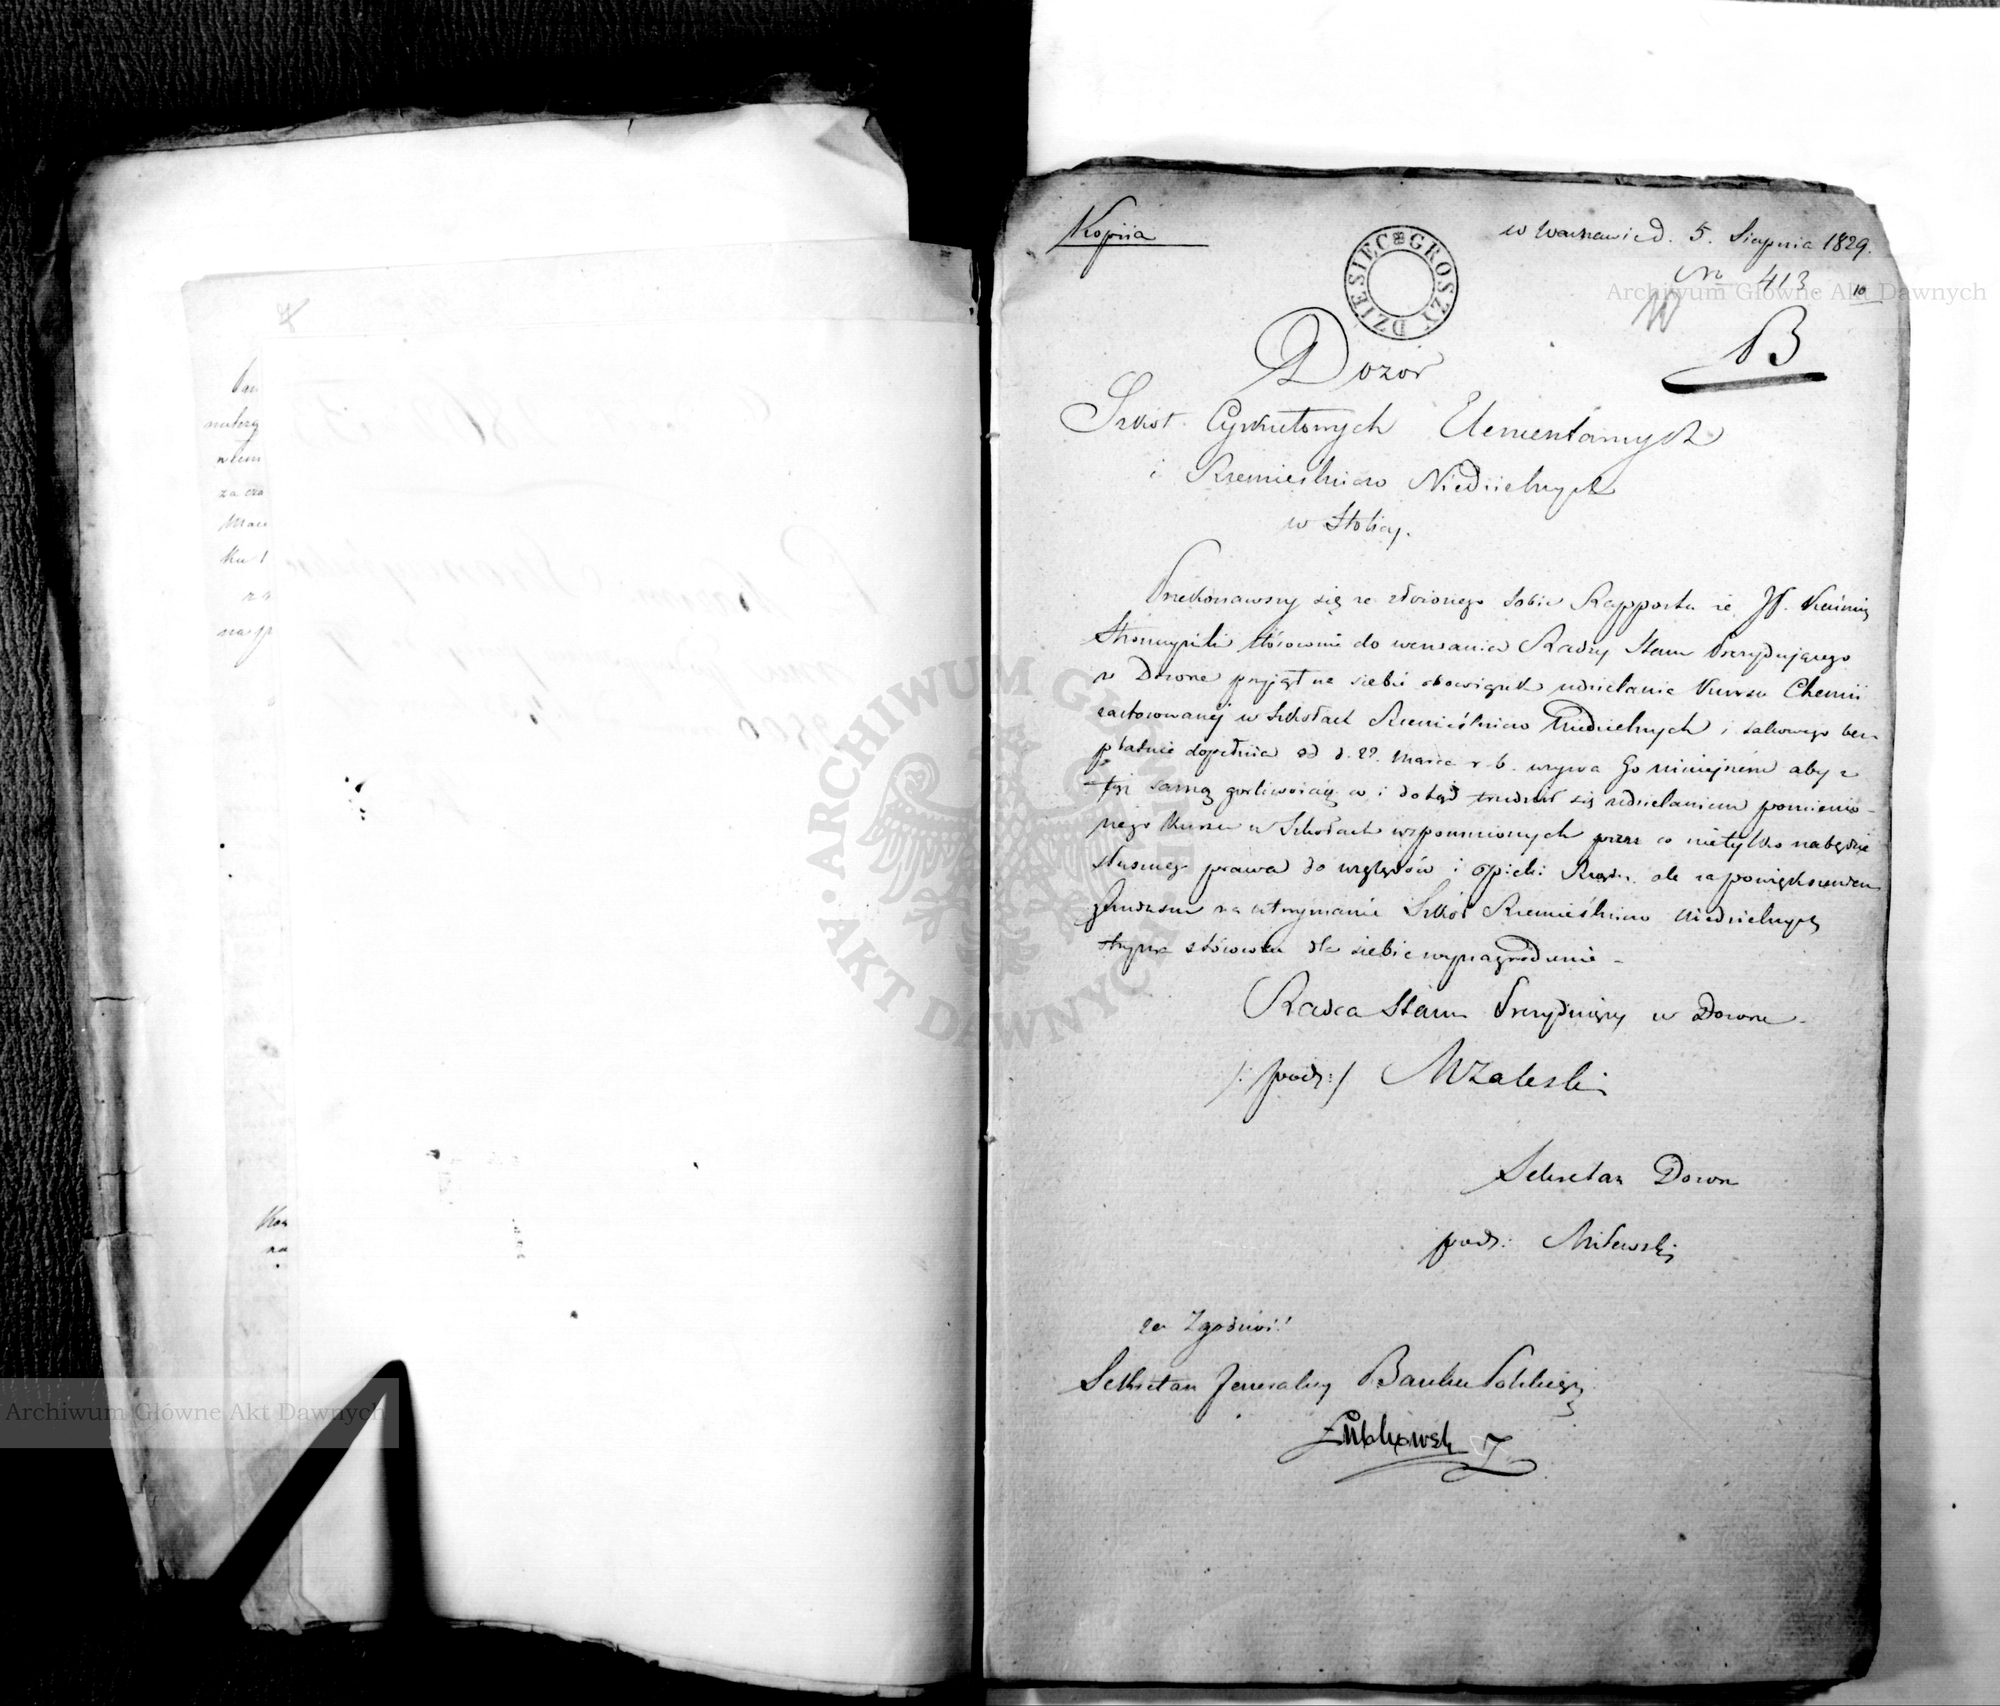 Kopiia
w Warszawie d. 5. Sierpnia 1829.
DZIESIĘC GROSZY
No 413
10
B
Dozór
Szkół Cyrkułowych Elementarnych
i Rzemieślniczo Niedzielnych
w Stolicy.
Przekonawszy się ze złożonego sobie Rapportu że JP.
Stronczyński stósownie do wezwania Radcy Stanu Prezydującego
w Dozorze przyjął na siebie obowiązek udzielania Kursu Chemii
zastosowanej w Szkołach Rzemieślniczo Niedzielnych i takowego bez-
płatnie dopełnia od d. 22. Marca r. b. wzywa Go niniejszem aby z
tąż samą gorliwością co i dotąd trudnił się udzielaniem pomienio-
nego Kursu w Szkołach wspomnionych przez co nietylko nabędzie
słusznego prawa do względów i opieki Rządu, ale za powiększeniem
funduszu na utrzymanie Szkół Rzemieślniczo Niedzielnych
otrzyma stósowne dla siebie wynagrodzenie –
Radca Stanu Prezydujący w Dozorze –
/: podp:/ MZaleski
Sekretarz Dozoru
podp: Milewski
za Zgodność!
Sekretarz Jeneralny Banku Polskiego
Łubkowski J
Archiwum Główne Akt Dawnych
Archiwum Główne Akt Dawnych
ARCHIWUM GŁÓWNE AKT DAWNYCH